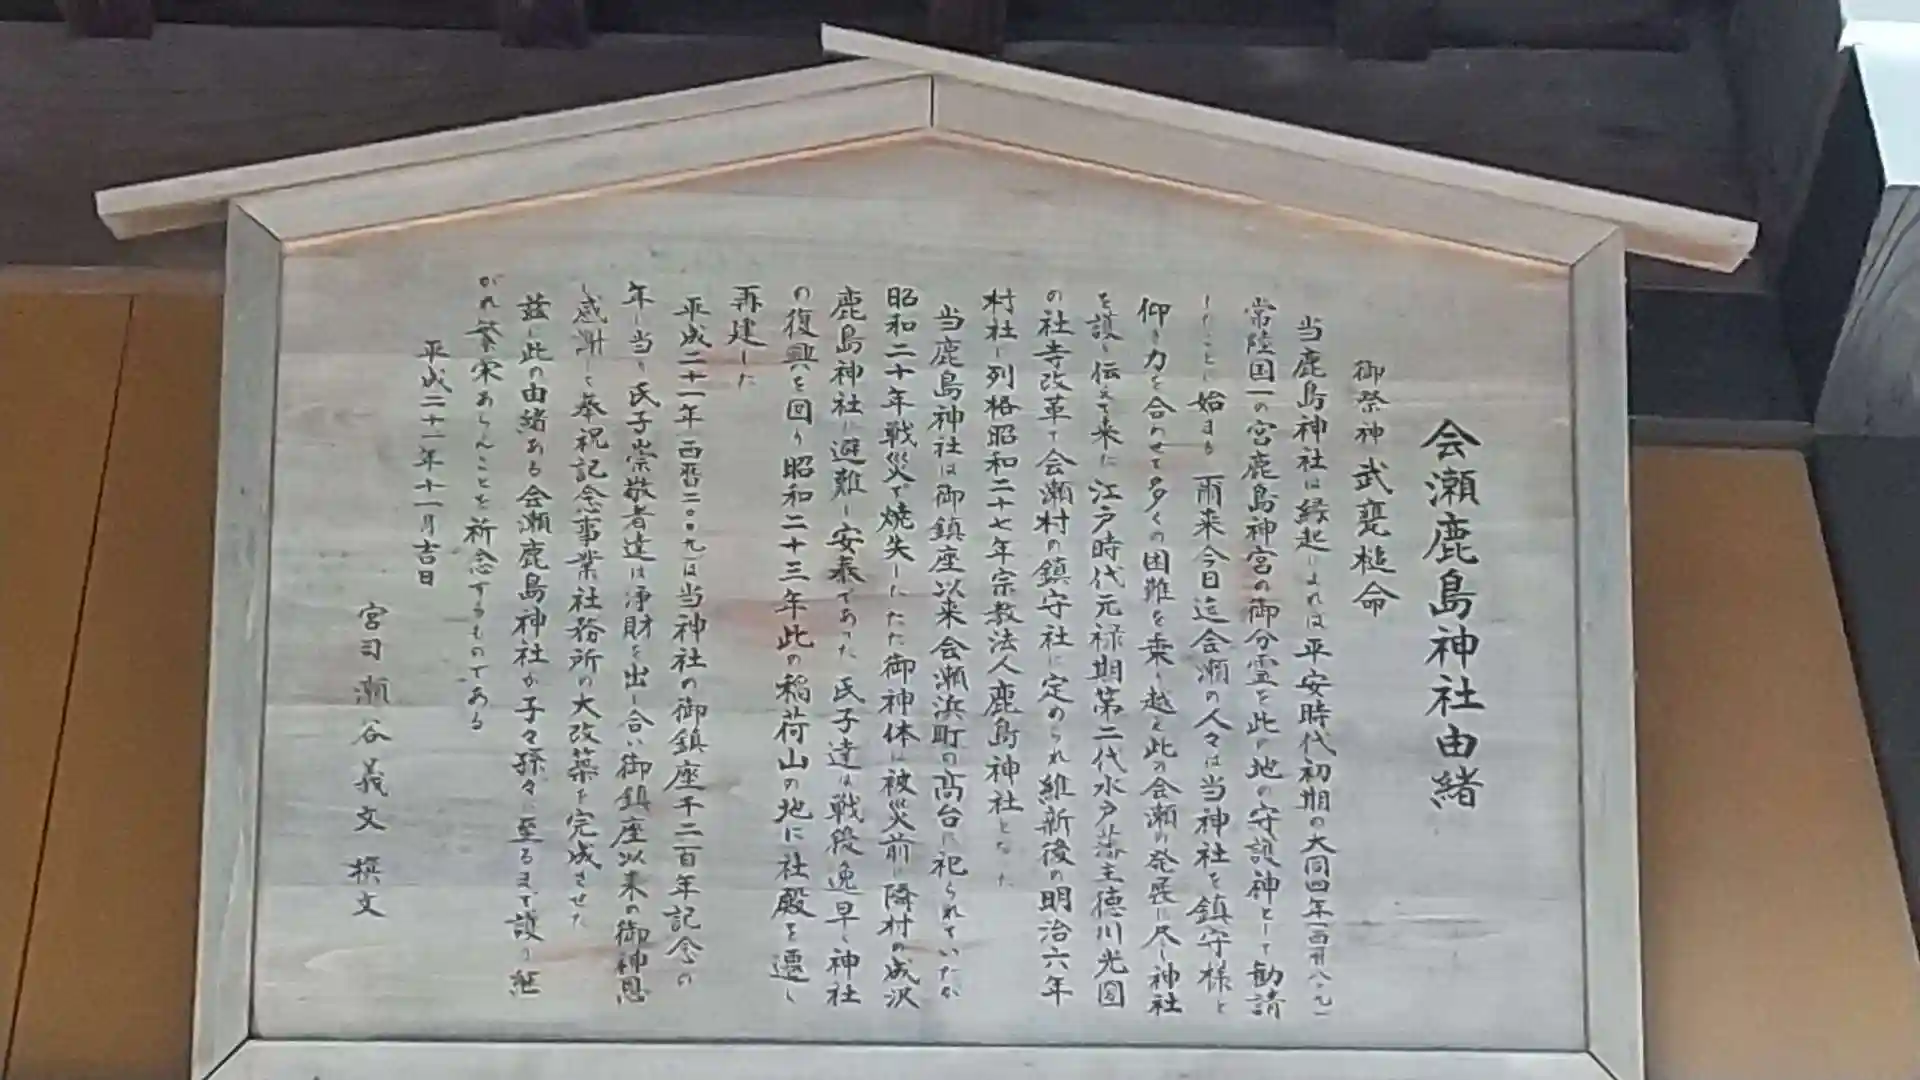 会瀬鹿島神社由緒
御祭神 武甕槌命
当鹿島神社は縁起によれば平安時代初期の大同四年(西暦八〇九)
常陸国一の宮鹿島神宮の御分霊を此の地の守護神として勧請
したことに始まる 雨来今日迄会瀬の人々は当神社を鎮守様と
仰き力を合わせて多くの困難を乗り越え此の会瀬の発展に尽し神社
を護り伝えて来た江戸時代元禄期第二代水戸藩主徳川光圀
の社寺改革で会瀬村の鎮守社に定められ維新後の明治六年
村社に列格昭和二十七年宗教法人鹿島神社となった
当鹿島神社は御鎮座以来会瀬浜町の高台に祀られていたが
昭和二十年戦災で焼失したただ御神体は被災前に隣村の成沢
鹿島神社に避難し安泰であった 氏子達は戦後逸早く神社
の復興を図り昭和二十三年此の稲荷山の地に社殿を遷し
再建した
平成二十一年(西暦二〇〇九)は当神社の御鎮座千二百年記念の
年に当り氏子崇敬者達は浄財を出し合い御鎮座以来の御神恩
に感謝して奉祝記念事業社務所の大改築を完成させた
茲に此の由緒ある会瀬鹿島神社が子々孫々に至るまで護り継
がれ繁栄あらんことを祈念するものである
平成二十一年十一月吉日
宮司 瀬谷義文 撰文